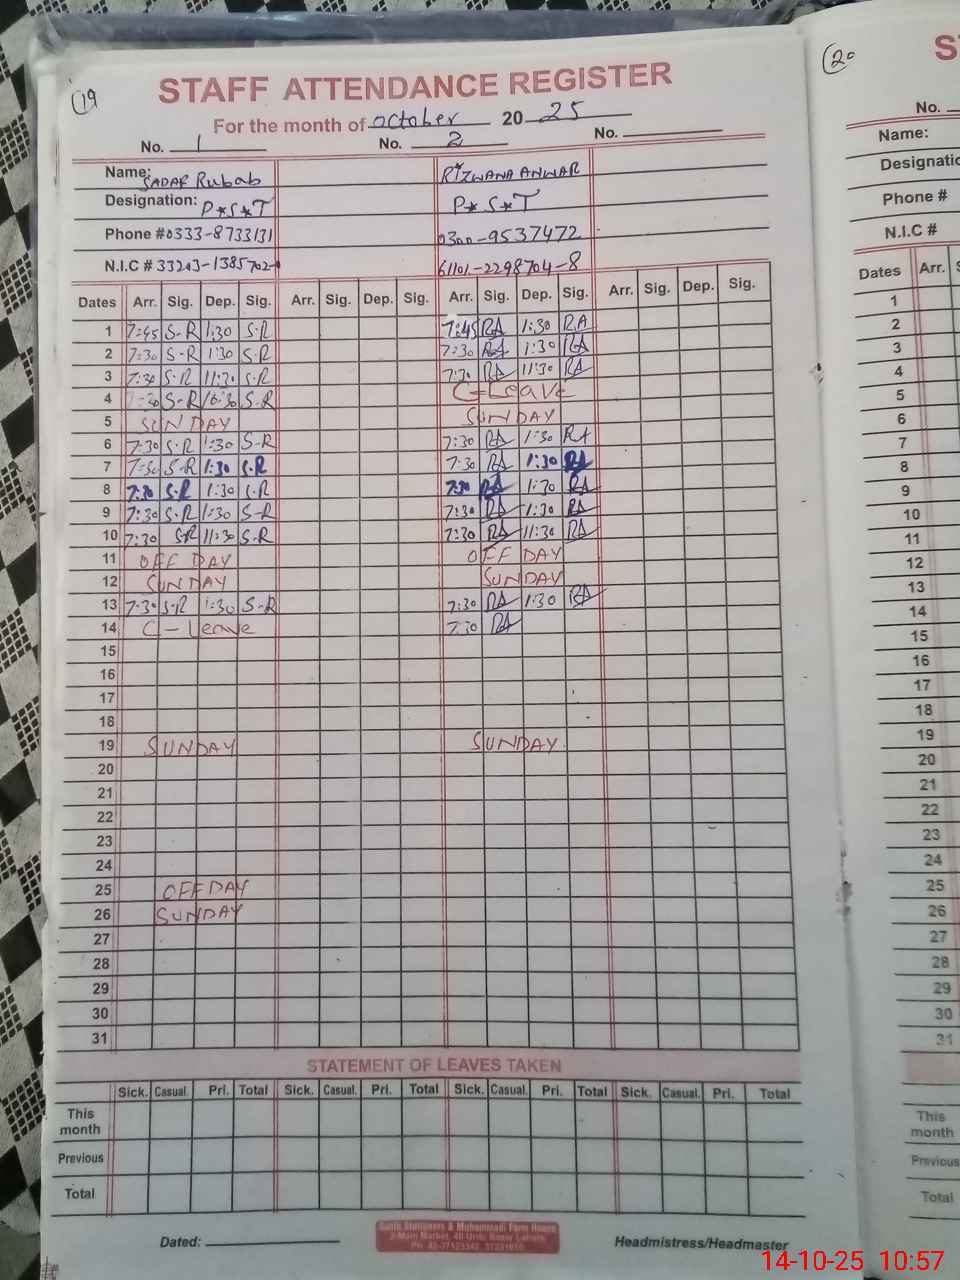 19
STAFF ATTENDANCE REGISTER
For the month of October 2025
No. 1 No. 2 No.
Name: SADAF Rubab RIZWANA ANWAR
Designation: P*S*T P*S*T
Phone # 0333-8733131 0300-9537472
N.I.C # 61101-2298704-8
Dates Arr. Sig. Dep. Sig. Arr. Sig. Dep. Sig. Arr. Sig. Dep. Sig. Arr. Sig. Dep. Sig.
1 7:45 S-R 1:30 S.R 7:45 RA 1:30 RA
2 7:30 S-R 1:30 S.R 7:30 RA 1:30 RA
3 7:30 S.R 11:30 S.R 7:30 RA 11:30 RA
4 7:30 S-R 10:30 S.R C-Leave
5 SUNDAY SUNDAY
6 7:30 S.R 1:30 S-R 7:30 RA 1:30 RA
7 7:30 S-R 1:30 S.R 7:30 RA 1:30 RA
8 7:30 S.R 1:30 S.R 7:30 RA 1:30 RA
9 7:30 S.R 1:30 S-R 7:30 RA 1:30 RA
10 7:30 S.R 11:30 S-R 7:30 RA 11:30 RA
11 OFF DAY OFF DAY
12 SUNDAY SUNDAY
13 7:30 S.R 1:30 S-R 7:30 RA 1:30 RA
14 C-Leave 7:30 RA
15
16
17
18
19 SUNDAY SUNDAY
20
21
22
23
24
25 OFF DAY
26 SUNDAY
27
28
29
30
31
STATEMENT OF LEAVES TAKEN
Sick. Casual. Pri. Total Sick. Casual. Pri. Total Sick. Casual. Pri. Total Sick. Casual. Pri. Total
This month
Previous
Total
Dated: Headmistress/Headmaster
20
No.
Name:
Phone #
N.I.C #
Dates Arr.
1
2
3
4
5
6
7
8
9
10
11
12
13
14
15
16
17
18
19
20
21
22
23
24
25
26
27
28
29
30
31
This month
Previous
Total
14-10-25 10:57